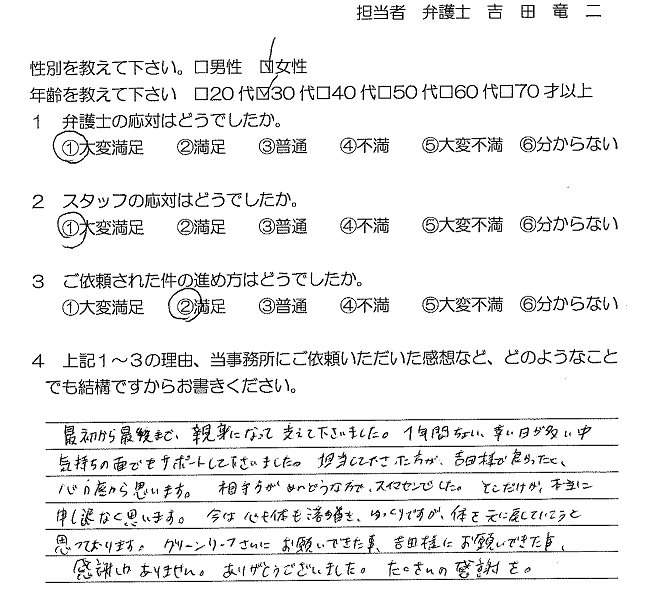 担当者 弁護士 吉 田 竜 二
性別を教えて下さい。□男性 ☑女性
年齢を教えて下さい □20代☑30代□40代□50代□60代□70才以上
1 弁護士の応対はどうでしたか。
①大変満足 ②満足 ③普通 ④不満 ⑤大変不満 ⑥分からない
2 スタッフの応対はどうでしたか。
①大変満足 ②満足 ③普通 ④不満 ⑤大変不満 ⑥分からない
3 ご依頼された件の進め方はどうでしたか。
①大変満足 ②満足 ③普通 ④不満 ⑤大変不満 ⑥分からない
4 上記1～3の理由、当事務所にご依頼いただいた感想など、どのようなこと
でも結構ですからお書きください。
最初から最後まで、親身になって支えて下さいました。1年間ちかい、辛い日が多い中
気持ちの面でもサポートして下さいました。担当して下さった方が、吉田様で良かったと、
心の底から思います。相手方がめんどうな方で、スイマセンでした。そこだけが、本当に
申し訳なく思います。今は心も体も落ち着き、ゆっくりですが、体を元に戻していこうと
思っております。グリーンリーフさんにお願いできた事、吉田様にお願いできた事、
感謝しかありません。ありがとうございました。たくさんの感謝を。